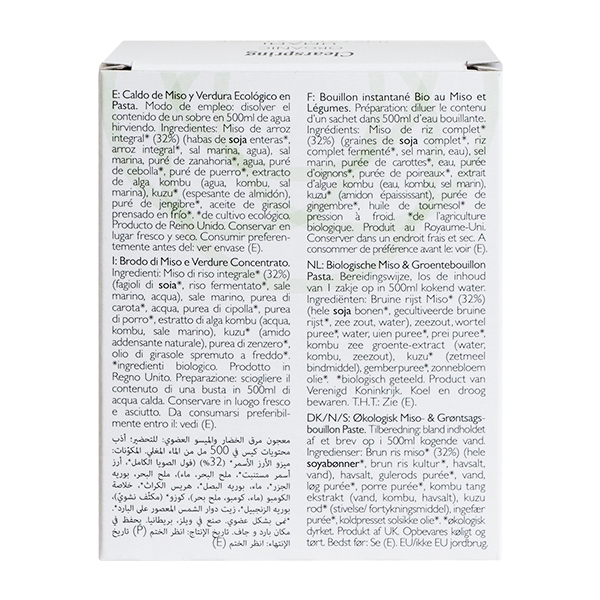 Clearspring
ORGANIC
E: Caldo de Miso y Verdura Ecológico en
Pasta. Modo de empleo: disolver el
contenido de un sobre en 500ml de agua
hirviendo. Ingredientes: Miso de arroz
integral* (32%) (habas de soja enteras*,
arroz integral*, sal marina, agua), sal
marina, puré de zanahoria*, agua, puré
de cebolla*, puré de puerro*, extracto
de alga kombu (agua, kombu, sal
marina), kuzu* (espesante de almidón),
puré de jengibre*, aceite de girasol
prensado en frío*. *de cultivo ecológico.
Producto de Reino Unido. Conservar en
lugar fresco y seco. Consumir preferen-
temente antes del: ver envase (E).
I: Brodo di Miso e Verdure Concentrato.
Ingredienti: Miso di riso integrale* (32%)
(fagioli di soia*, riso fermentato*, sale
marino, acqua), sale marino, purea di
carota*, acqua, purea di cipolla*, purea
di porro*, estratto di alga kombu (acqua,
kombu, sale marino), kuzu* (amido
addensante naturale), purea di zenzero*,
olio di girasole spremuto a freddo*.
*ingredienti biologico. Prodotto in
Regno Unito. Preparazione: sciogliere il
contenuto di una busta in 500ml di
acqua calda. Conservare in luogo fresco
e asciutto. Da consumarsi preferibil-
mente entro il: vedi (E).
معجون مرق الخضار والميسو العضوي: للتحضير: أذب
محتويات كيس في 500 مل من الماء المغلي. المكوّنات:
ميزو الأرز الأسمر* (32%) (فول الصويا الكامل*، أرز
أسمر مستنبت*، ملح البحر، ماء)، ملح البحر، بوريه
الجزر*، ماء، بوريه البصل*، بوريه الكراث*، خلاصة
الكومبو (ماء، كومبو، ملح بحر)، كوزو* (مكثّف نشوي)،
بوريه الزنجبيل*، زيت دوار الشمس المعصور على البارد*.
*نمى بشكل عضوي. صنع في ويلز، بريطانيا. يحفظ في
مكان بارد و جاف. تاريخ الإنتاج: انظر الختم (P) تاريخ
الإنتهاء: انظر الختم (E)
F: Bouillon instantané Bio au Miso et
Légumes. Préparation: diluer le contenu
d'un sachet dans 500ml d'eau bouillante.
Ingrédients: Miso de riz complet*
(32%) (graines de soja complet*, riz
complet fermenté*, sel marin, eau), sel
marin, purée de carottes*, eau, purée
d'oignons*, purée de poireaux*, extrait
d'algue kombu (eau, kombu, sel marin),
kuzu* (amidon épaississant), purée de
gingembre*, huile de tournesol* de
pression à froid. *de l'agriculture
biologique. Produit au Royaume-Uni.
Conserver dans un endroit frais et sec. A
consommer de préférence avant le: voir (E).
NL: Biologische Miso & Groentebouillon
Pasta. Bereidingswijze, los de inhoud
van 1 zakje op in 500ml kokend water.
Ingrediënten: Bruine rijst Miso* (32%)
(hele soja bonen*, gecultiveerde bruine
rijst*, zee zout, water), zeezout, wortel
puree*, water, uien puree*, prei puree*,
kombu zee groente-extract (water,
kombu, zeezout), kuzu* (zetmeel
bindmiddel), gemberpuree*, zonnebloem
olie*. *biologisch geteeld. Product van
Verenigd Koninkrijk. Koel en droog
bewaren. T.H.T.: Zie (E).
DK/N/S: Økologisk Miso- & Grøntsags-
bouillon Paste. Tilberedning: bland indholdet
af et brev op i 500ml kogende vand.
Ingredienser: Brun ris miso* (32%) (hele
soyabønner*, brun ris kultur*, havsalt,
vand), havsalt, gulerods purée*, vand,
løg purée*, porre purée*, kombu tang
ekstrakt (vand, kombu, havsalt), kuzu
rod* (stivelse/fortykningsmiddel), ingefær
purée*, koldpresset solsikke olie*. *økologisk
dyrket. Produkt af UK. Opbevares køligt og
tørt. Bedst før: Se (E). EU/ikke EU jordbrug.